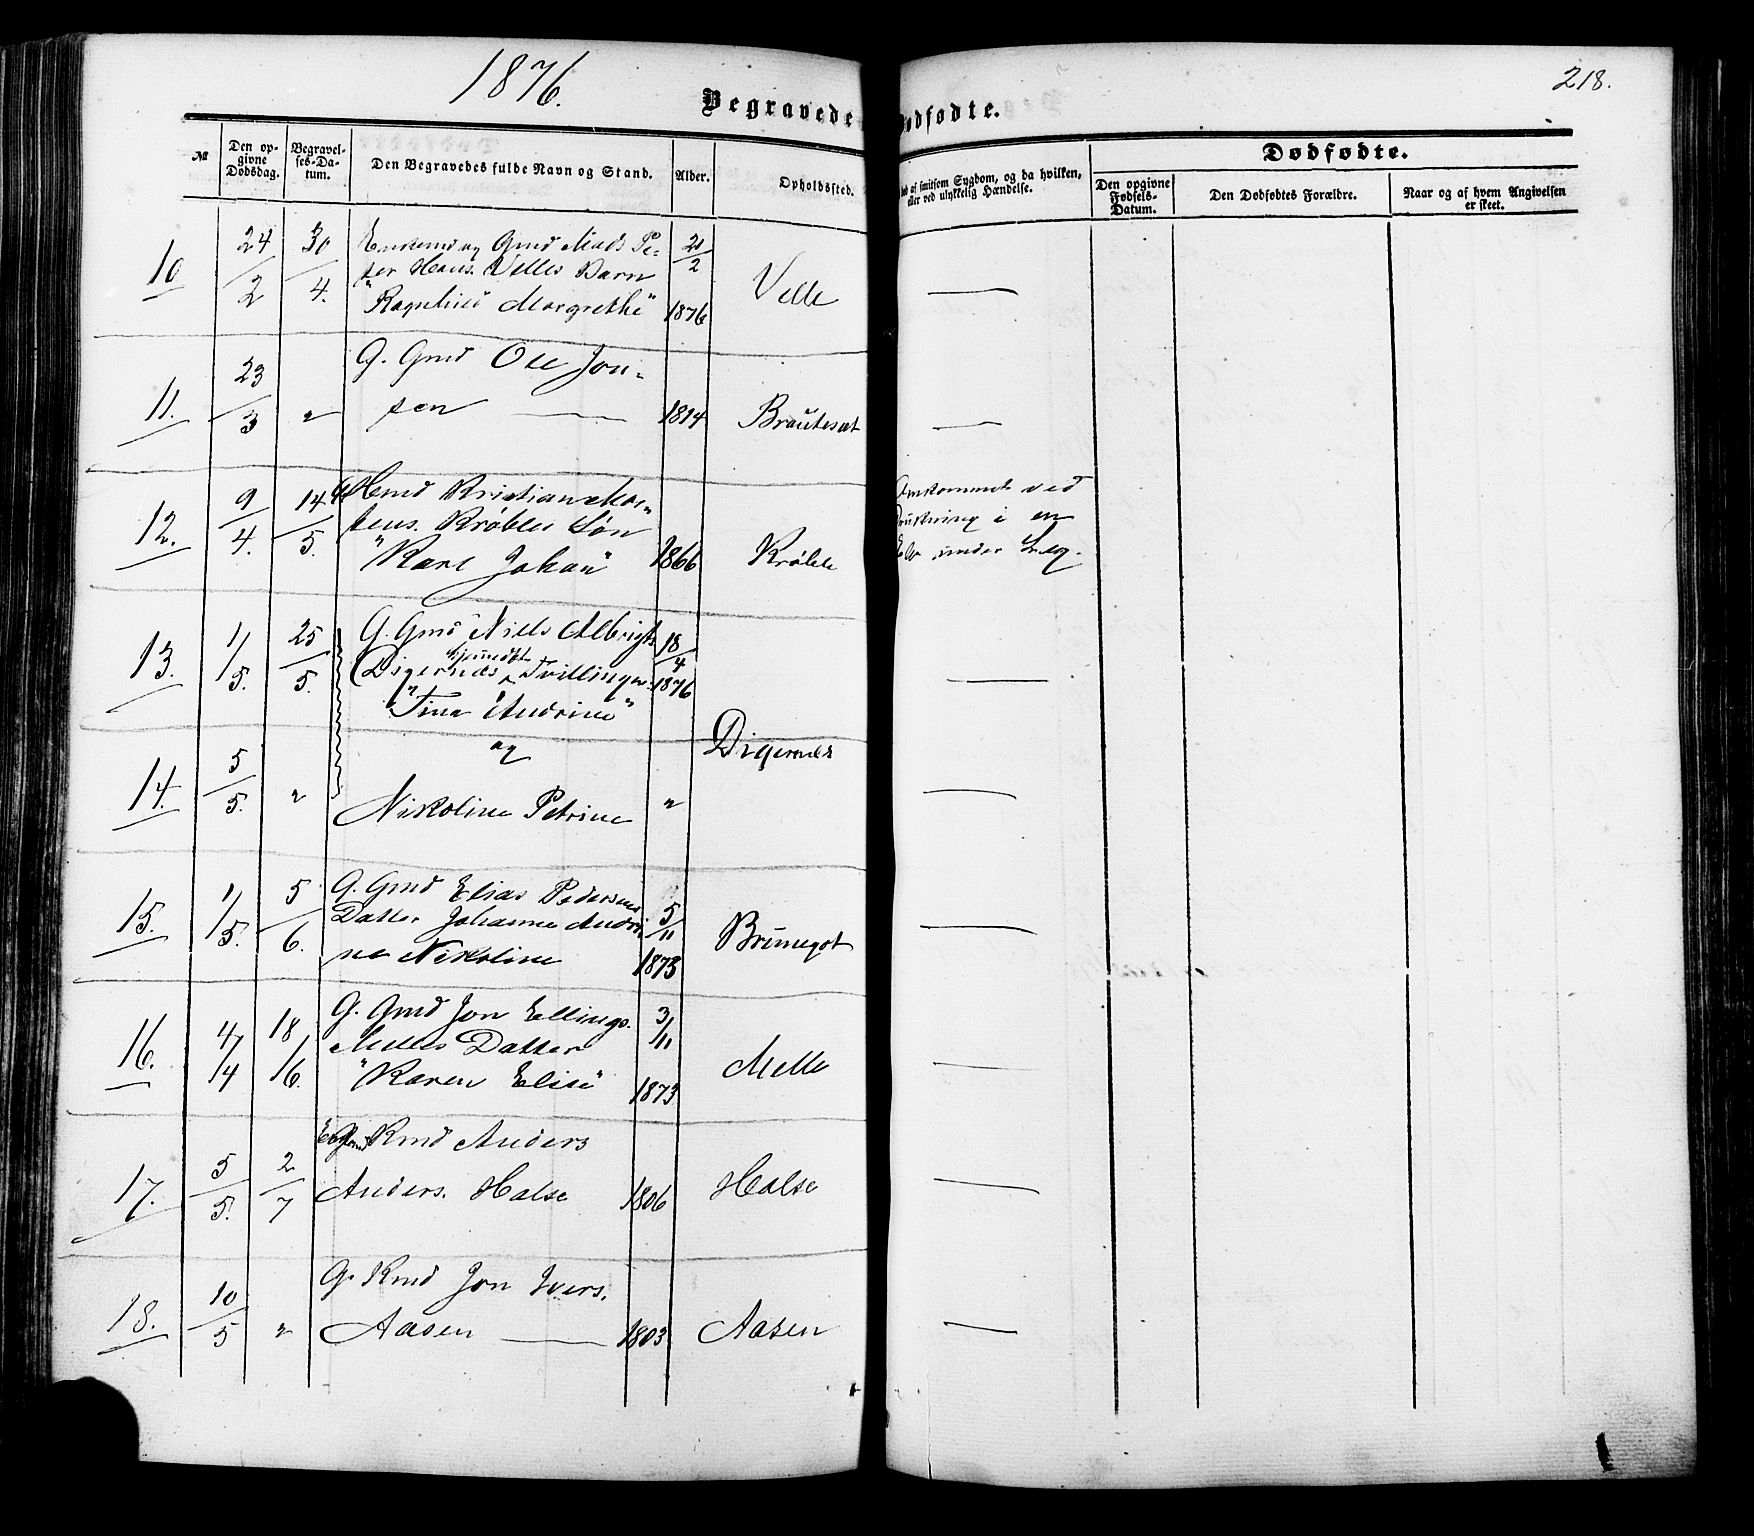 1876.
218.
Begravede
Dødfødte.
№
Den op-
givne
Dødsdag.
Begravel-
ses-Da-
tum.
Den Begravedes fulde Navn og Stand.
Alder.
Opholdssted.
af smitsom Sygdom, og da hvilken,
eller ved ulykkelig Hændelse.
Dødfødte.
Den opgivne
Fødsels-
Datum.
Den Dødfødtes Forældre.
Naar og af hvem Angivelsen
er skeet.
10
24/2
30/4.
Gmd Mads Pe-
ter Hans. Velles Barn
"Ragnhild Margrethe"
2/2
1876
Velle
11.
23/3
"
G. Gmd Ole Jon-
sen
1814
Brauteset
12.
9/4.
14/5.
Kristian Mor-
tens. Krøbles Søn
"Karl Johan"
1866
Krøble
Omkommet ved
Drukning i en
Elv under Leg.
13.
1/5.
25/5.
G. Gmd Niels Albrigts
Digernæs hjemdøbt Tvillinger
"Tina Andrine"
18/4
1876
og
Digernæs
14.
5/5.
"
Nikoline Petrine
"
15.
1/5.
5/6.
G. Gmd Elias Pedersens
Datter Johanna Andri-
ne Nikoline
5/11
1873
Brunegot
16.
4/4
18/6.
G. Gmd Jon Ellings.
Melles Datter
"Karen Elise"
3/11
1873
Melle
17.
5/5.
2/7
Kmd Anders
Anders. Halse
1806
Halse
18.
10/5
"
G. Kmd Jon Ivers.
Aasen
1803
Aasen